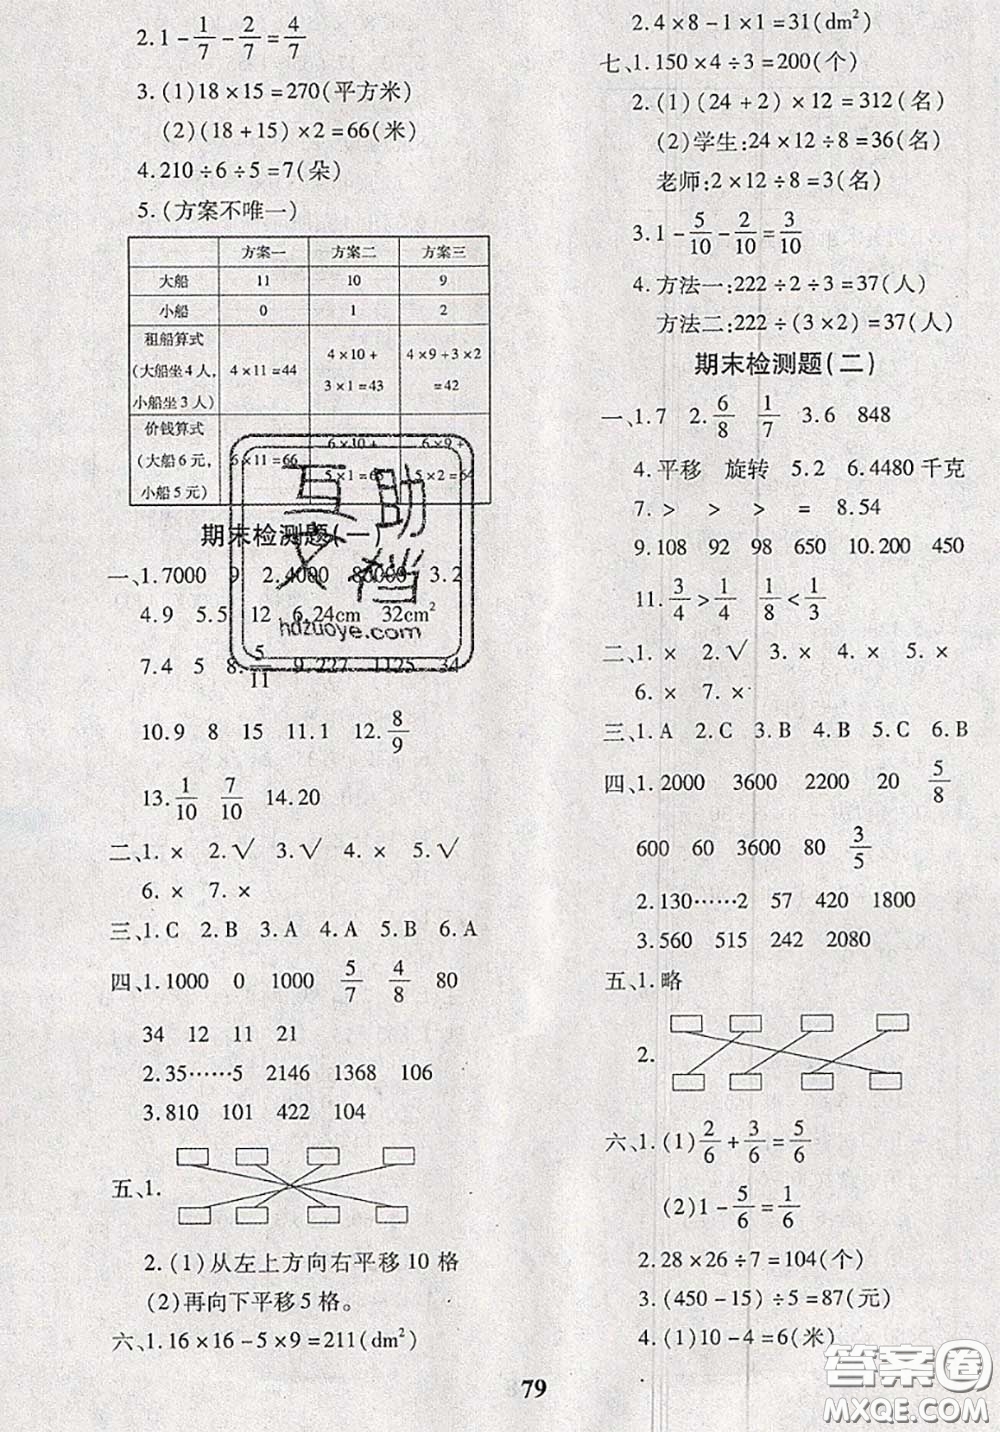 2. 1 - 1/7 - 2/7 = 4/7
3. (1) 18 × 15 = 270(平方米)
(2) (18 + 15) × 2 = 66(米)
4. 210 ÷ 6 ÷ 5 = 7(朵)
5. (方案不唯一)
方案一 方案二 方案三
大船 11 10 9
小船 0 1 2
租船算式(大船坐4人,小船坐3人) 4×11=44 4×10+3×1=43 4×9+3×2=42
价钱算式(大船6元,小船5元) 6×11=66 6×10+5×1=65 6×9+5×2=64
期末检测题(一)
一、1. 7000 9 2. 4000 80000 3. 2
4. 9 5. 5 12 6. 24cm 32cm²
7. 4 5 8. 5/11 9. 227 1125 34
10. 9 8 15 11. 1 12. 8/9
13. 1/10 7/10 14. 20
二、1. × 2. √ 3. √ 4. × 5. √
6. × 7. ×
三、1. C 2. B 3. A 4. A 5. B 6. A
四、1. 1000 0 1000 5/7 4/8 80
34 12 11 21
2. 35……5 2146 1368 106
3. 810 101 422 104
五、1.
2. (1)从左上方向右平移10格
(2)再向下平移5格。
六、1. 16 × 16 - 5 × 9 = 211(dm²)
2. 4 × 8 - 1 × 1 = 31(dm²)
七、1. 150 × 4 ÷ 3 = 200(个)
2. (1) (24 + 2) × 12 = 312(名)
(2)学生:24 × 12 ÷ 8 = 36(名)
老师:2 × 12 ÷ 8 = 3(名)
3. 1 - 5/10 - 2/10 = 3/10
4. 方法一:222 ÷ 2 ÷ 3 = 37(人)
方法二:222 ÷ (3 × 2) = 37(人)
期末检测题(二)
一、1. 7 2. 6/8 1/7 3. 6 848
4. 平移 旋转 5. 2 6. 4480千克
7. > > > = 8. 54
9. 108 92 98 650 10. 200 450
11. 3/4 > 1/4 1/8 < 1/3
二、1. × 2. √ 3. × 4. × 5. ×
6. × 7. ×
三、1. A 2. C 3. B 4. B 5. C 6. B
四、1. 2000 3600 2200 20 5/8
600 60 3600 80 3/5
2. 130……2 57 420 1800
3. 560 515 242 2080
五、1. 略
2.
六、1. (1) 2/6 + 3/6 = 5/6
(2) 1 - 5/6 = 1/6
2. 28 × 26 ÷ 7 = 104(个)
3. (450 - 15) ÷ 5 = 87(元)
4. (1) 10 - 4 = 6(米)
79
互助文档
hdzuoye.com
答案圈
MXQE.COM